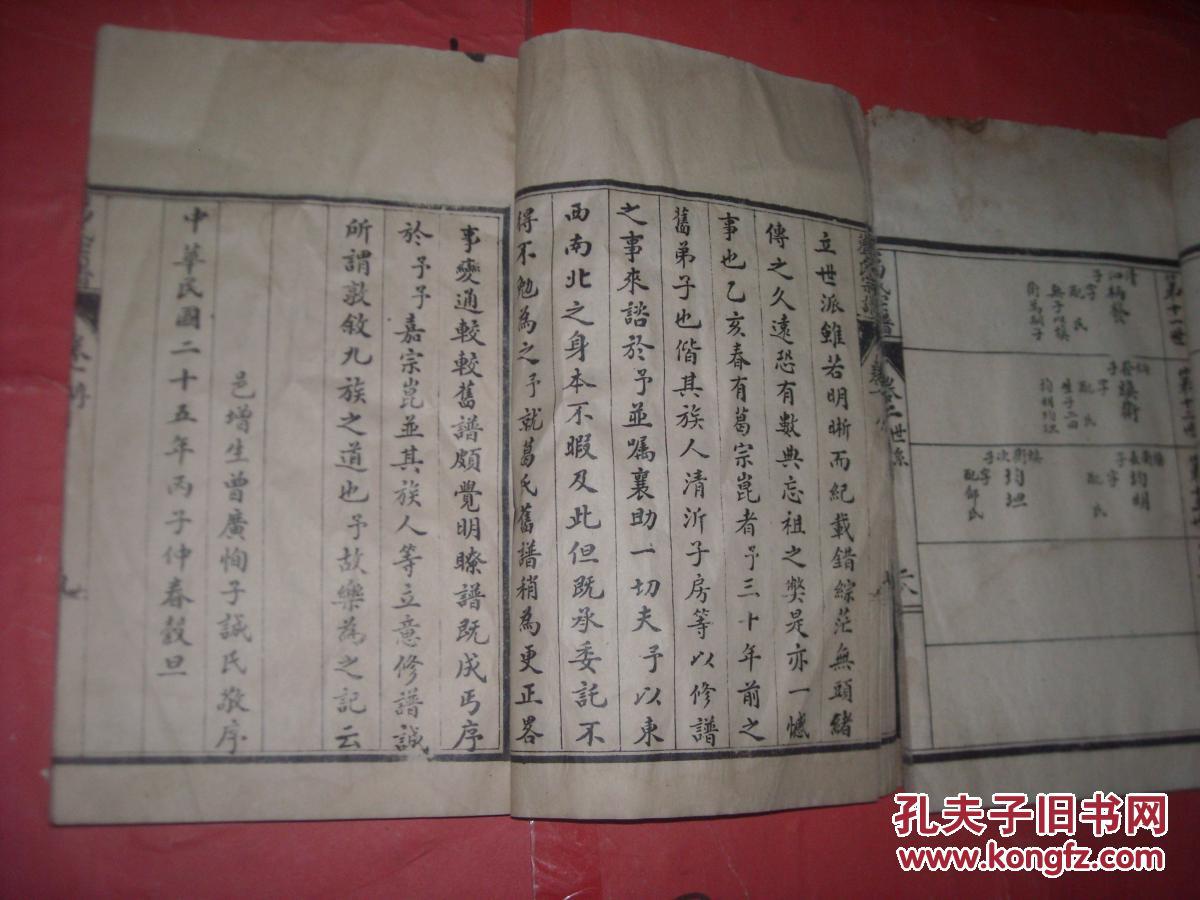 立世派雖若明晰而紀載錯綜茫無頭緒
傳之久遠恐有數典忘祖之獘是亦一憾
事也乙亥春有葛宗崑者予三十年前之
舊弟子也偕其族人清沂子房等以修譜
之事來諮於予並嘱襄助一切夫予以東
西南北之身本不暇及此但既承委託不
得不勉為之予就葛氏舊譜稍為更正畧
事變通較較舊譜頗覺明瞭譜既成丐序
於予予嘉宗崑並其族人等立意修譜誠
所謂敦敘九族之道也予故樂為之記云
邑增生曾廣恂子誠氏敬序
中華民國二十五年丙子仲春穀旦
卷二世系
六
均明
字
配 氏
均坦
字
配邵氏
孔夫子旧书网
www.kongfz.com